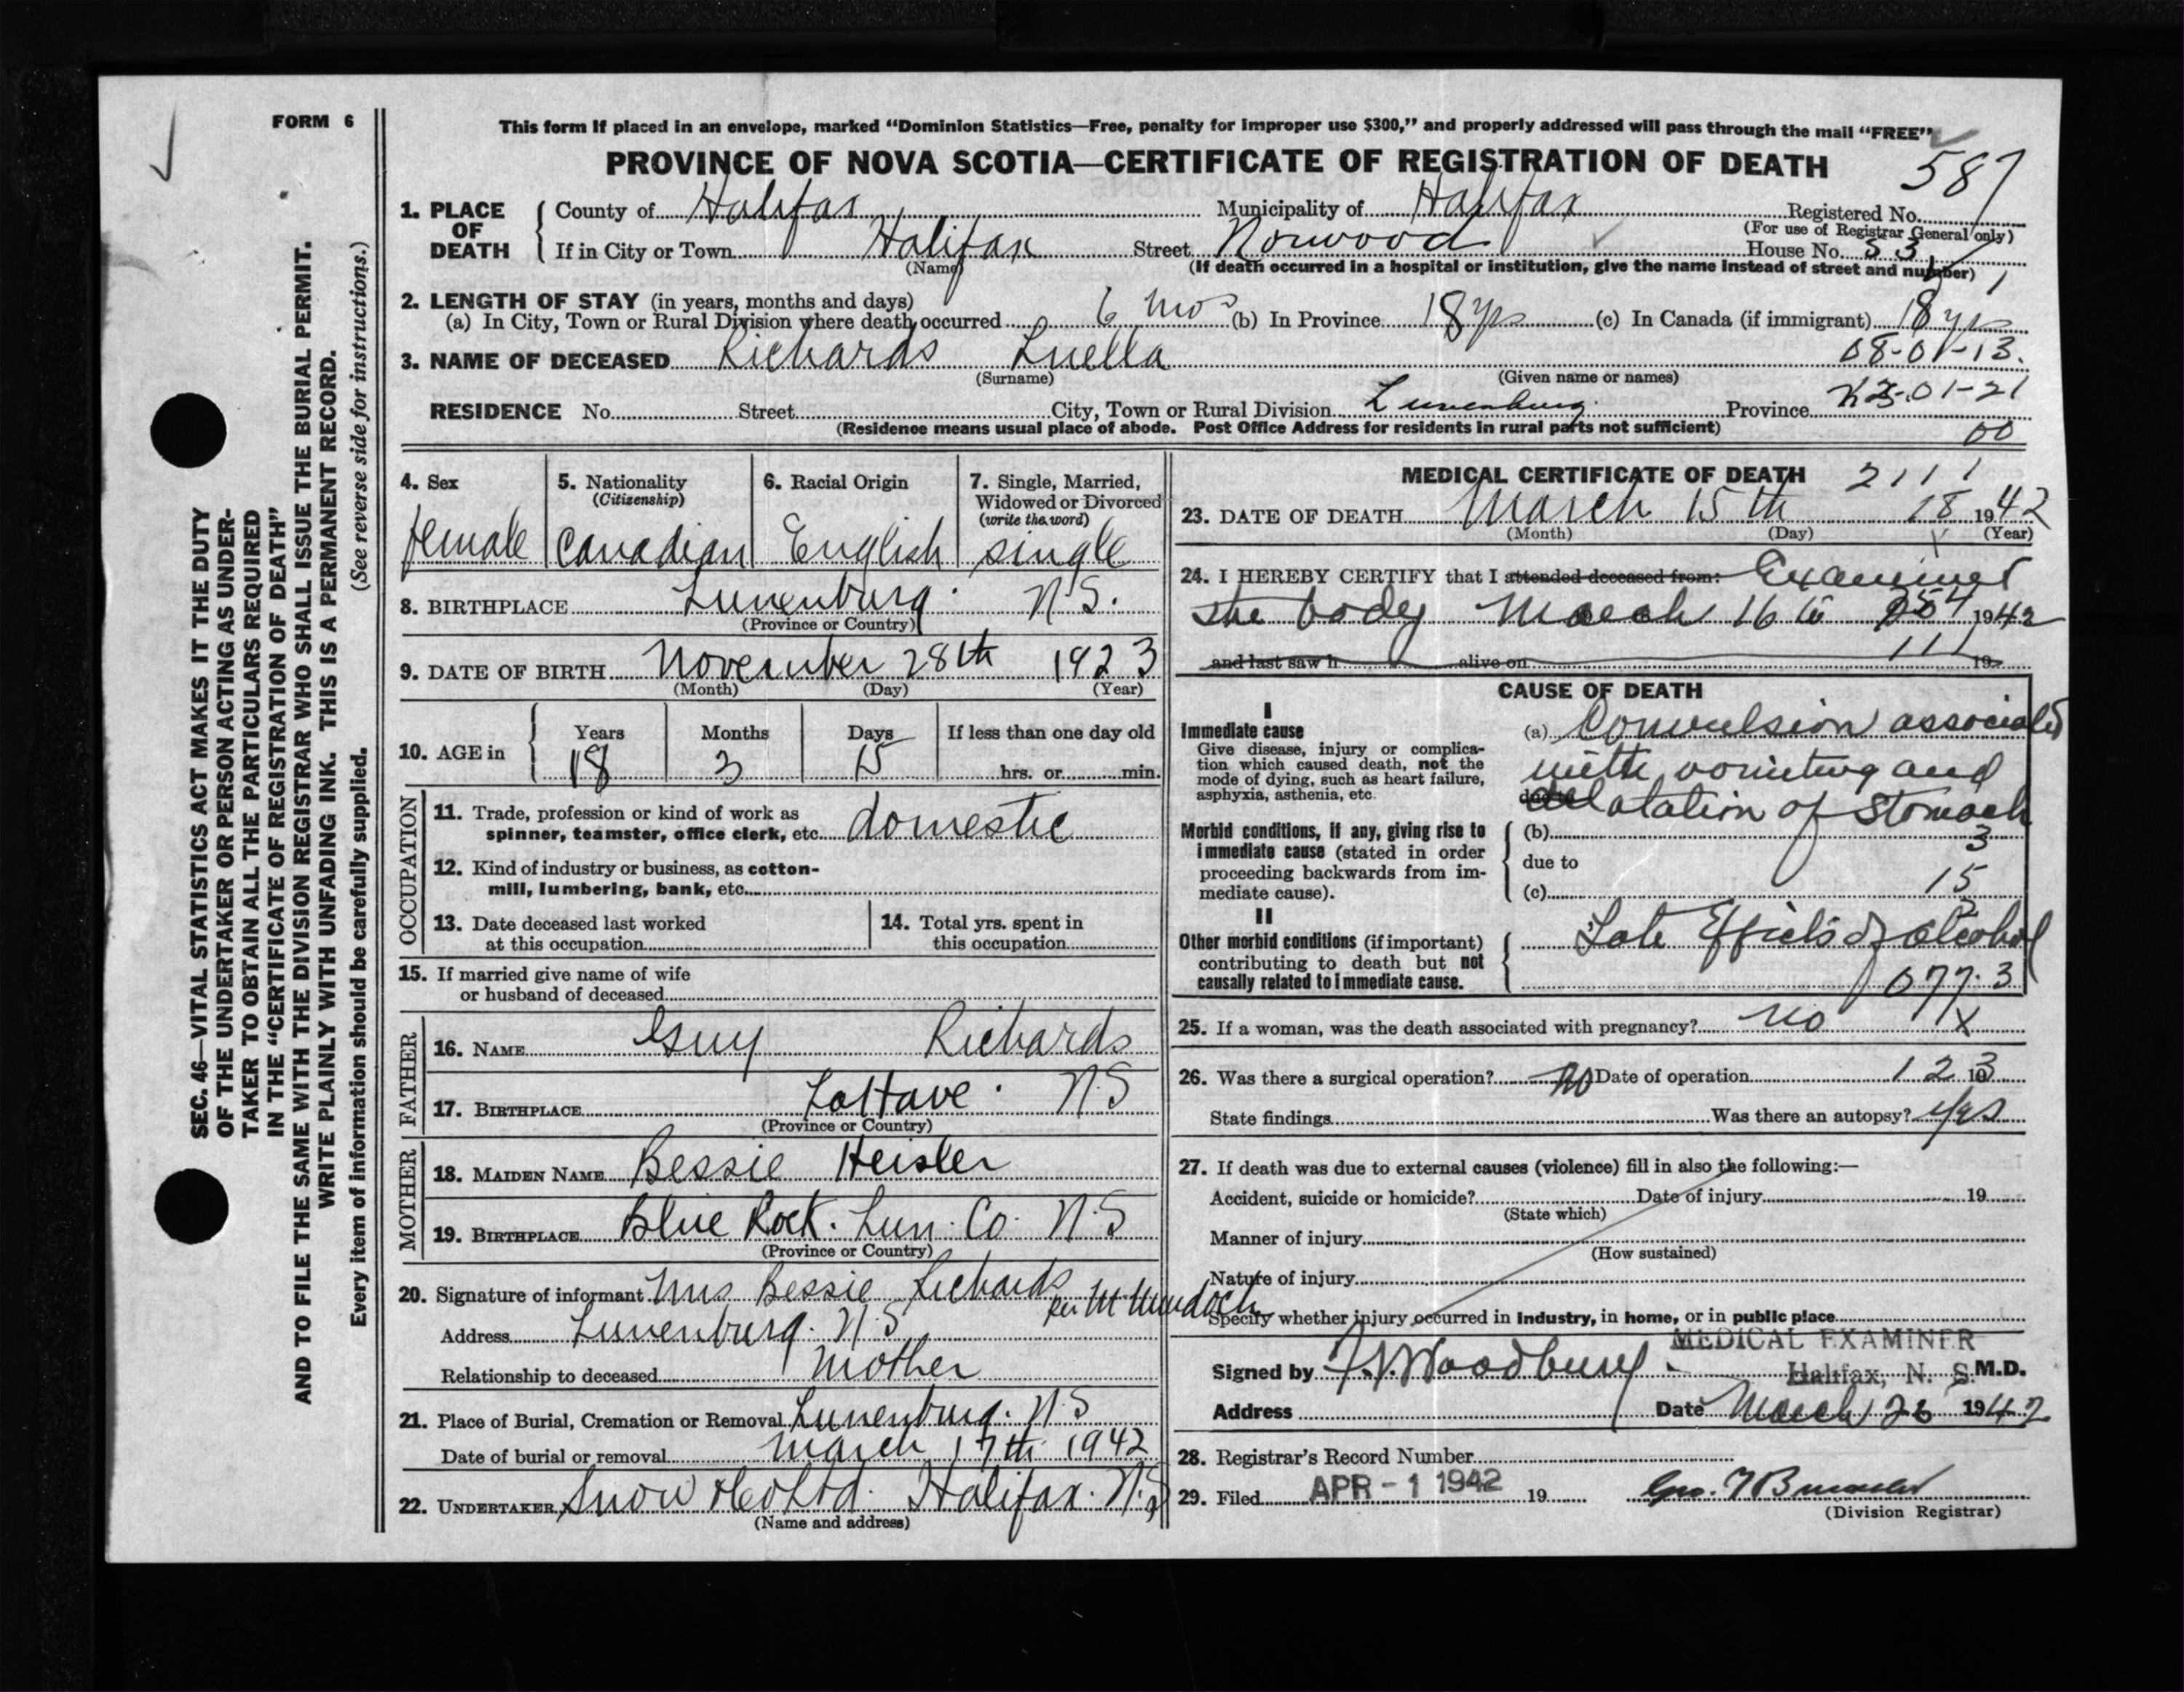 FORM 6
This form if placed in an envelope, marked "Dominion Statistics—Free, penalty for improper use $300," and properly addressed will pass through the mail "FREE"
PROVINCE OF NOVA SCOTIA—CERTIFICATE OF REGISTRATION OF DEATH
587
1. PLACE OF DEATH
County of Halifax Municipality of Halifax Registered No.
(For use of Registrar General only)
If in City or Town Halifax Street Norwood House No. 53
(Name) (If death occurred in a hospital or institution, give the name instead of street and number)
2. LENGTH OF STAY (in years, months and days)
(a) In City, Town or Rural Division where death occurred 6 mos (b) In Province 18 yrs (c) In Canada (if immigrant) 18 yrs
08-01-13.
3. NAME OF DECEASED Richards Luella
(Surname) (Given name or names)
RESIDENCE No. Street City, Town or Rural Division Lunenburg Province
01-21
00
(Residence means usual place of abode. Post Office Address for residents in rural parts not sufficient)
4. Sex female
5. Nationality (Citizenship) Canadian
6. Racial Origin English
7. Single, Married, Widowed or Divorced (write the word) single
8. BIRTHPLACE Lunenburg. N.S.
(Province or Country)
9. DATE OF BIRTH November 28th 1923
(Month) (Day) (Year)
10. AGE in Years 18 Months 3 Days 15 If less than one day old hrs. or min.
OCCUPATION
11. Trade, profession or kind of work as spinner, teamster, office clerk, etc. domestic
12. Kind of industry or business, as cotton-mill, lumbering, bank, etc.
13. Date deceased last worked at this occupation
14. Total yrs. spent in this occupation
15. If married give name of wife or husband of deceased
FATHER
16. NAME Guy Richards
17. BIRTHPLACE LaHave. N.S
(Province or Country)
MOTHER
18. MAIDEN NAME Bessie Heisler
19. BIRTHPLACE Blue Rock. Lun. Co. N.S
(Province or Country)
20. Signature of informant Mrs Bessie Richards per M Murdoch
Address Lunenburg. N.S
Relationship to deceased mother
21. Place of Burial, Cremation or Removal Lunenburg. N.S
Date of burial or removal March 17th 1942
22. UNDERTAKER Snow & Co Ltd. Halifax. N.S
(Name and address)
MEDICAL CERTIFICATE OF DEATH 2111
23. DATE OF DEATH March 15th 18 1942
(Month) (Day) (Year)
24. I HEREBY CERTIFY that I attended deceased from: Examined
the body March 16 1942
and last saw h alive on 19
111
CAUSE OF DEATH
I
Immediate cause
Give disease, injury or complication which caused death, not the mode of dying, such as heart failure, asphyxia, asthenia, etc.
(a) Convulsion associated
with vomiting and
dilatation of stomach
Morbid conditions, if any, giving rise to immediate cause (stated in order proceeding backwards from immediate cause).
(b) 3
due to
(c) 15
II
Other morbid conditions (if important) contributing to death but not causally related to immediate cause.
Late Effects of alcohol
077.3
25. If a woman, was the death associated with pregnancy? no X
26. Was there a surgical operation? no Date of operation 123 19
State findings Was there an autopsy? yes
27. If death was due to external causes (violence) fill in also the following:—
Accident, suicide or homicide? Date of injury 19
(State which)
Manner of injury
(How sustained)
Nature of injury
Specify whether injury occurred in industry, in home, or in public place
MEDICAL EXAMINER
Halifax, N. S.
Signed by Woodbury M.D.
Address Date March 26 1942
28. Registrar's Record Number
29. Filed APR - 1 1942 19
(Division Registrar)
SEC. 46—VITAL STATISTICS ACT MAKES IT THE DUTY
OF THE UNDERTAKER OR PERSON ACTING AS UNDER-
TAKER TO OBTAIN ALL THE PARTICULARS REQUIRED
IN THE "CERTIFICATE OF REGISTRATION OF DEATH"
AND TO FILE THE SAME WITH THE DIVISION REGISTRAR WHO SHALL ISSUE THE BURIAL PERMIT.
WRITE PLAINLY WITH UNFADING INK. THIS IS A PERMANENT RECORD.
Every item of information should be carefully supplied. (See reverse side for instructions.)